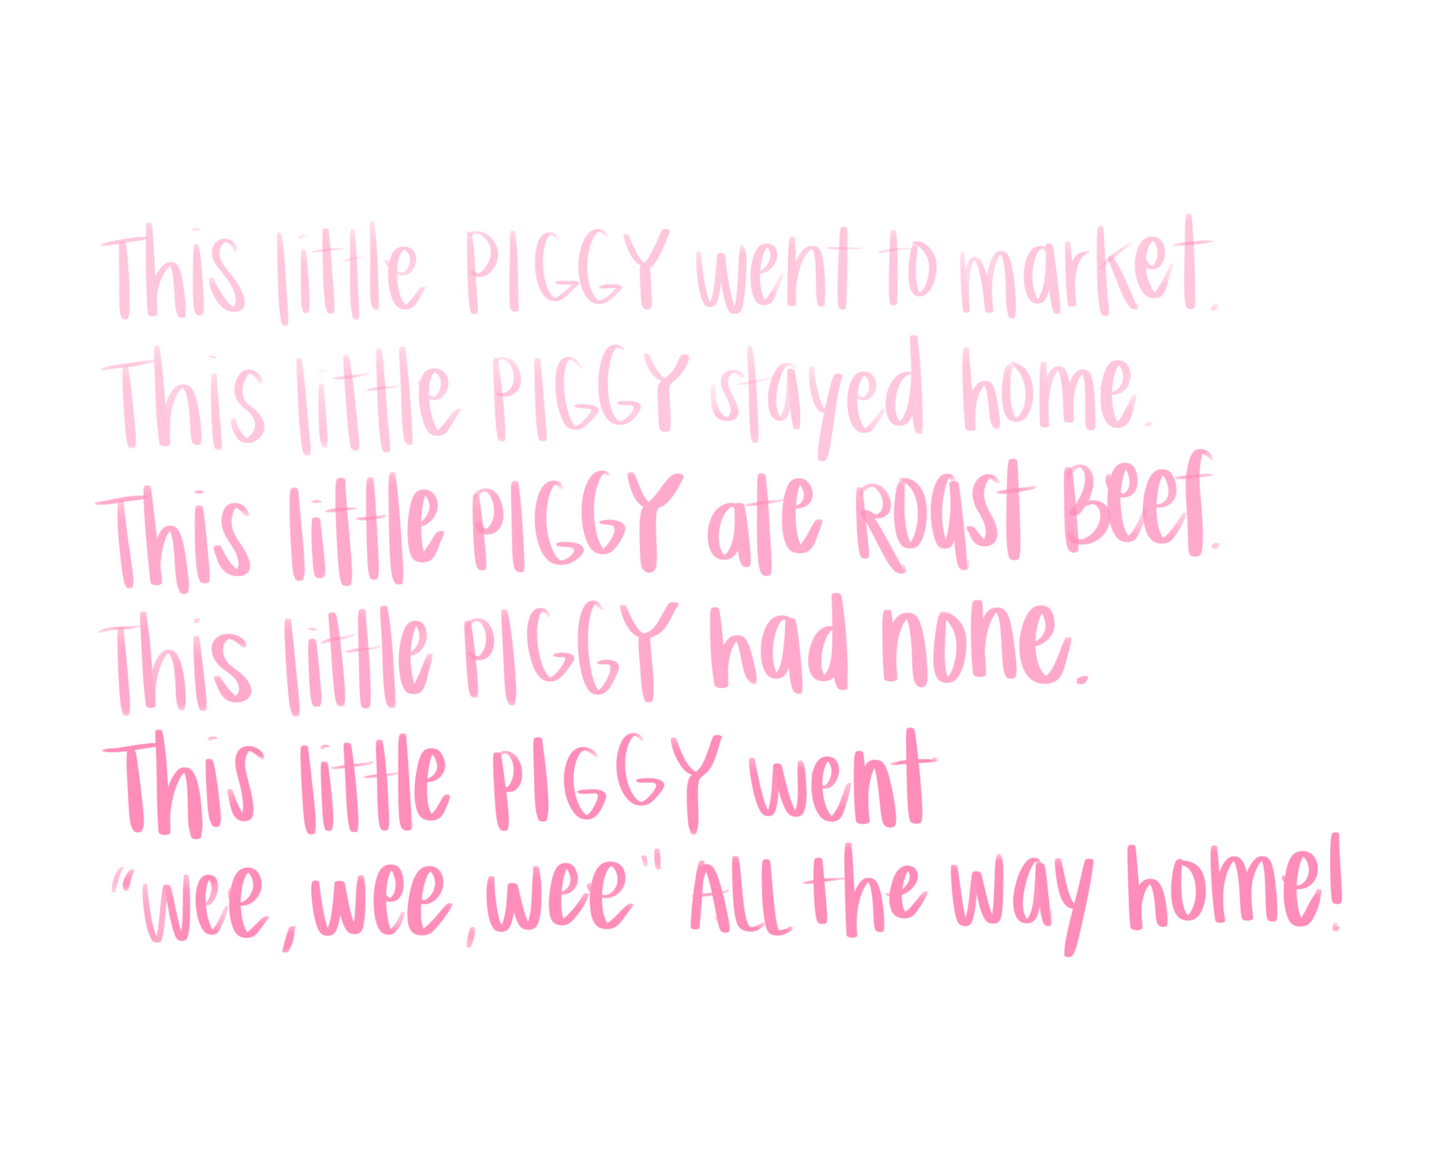 This little PIGGY went to market.
This little PIGGY stayed home.
This little PIGGY ate Roast Beef.
This little PIGGY had none.
This little PIGGY went
"wee, wee, wee" All the way home!